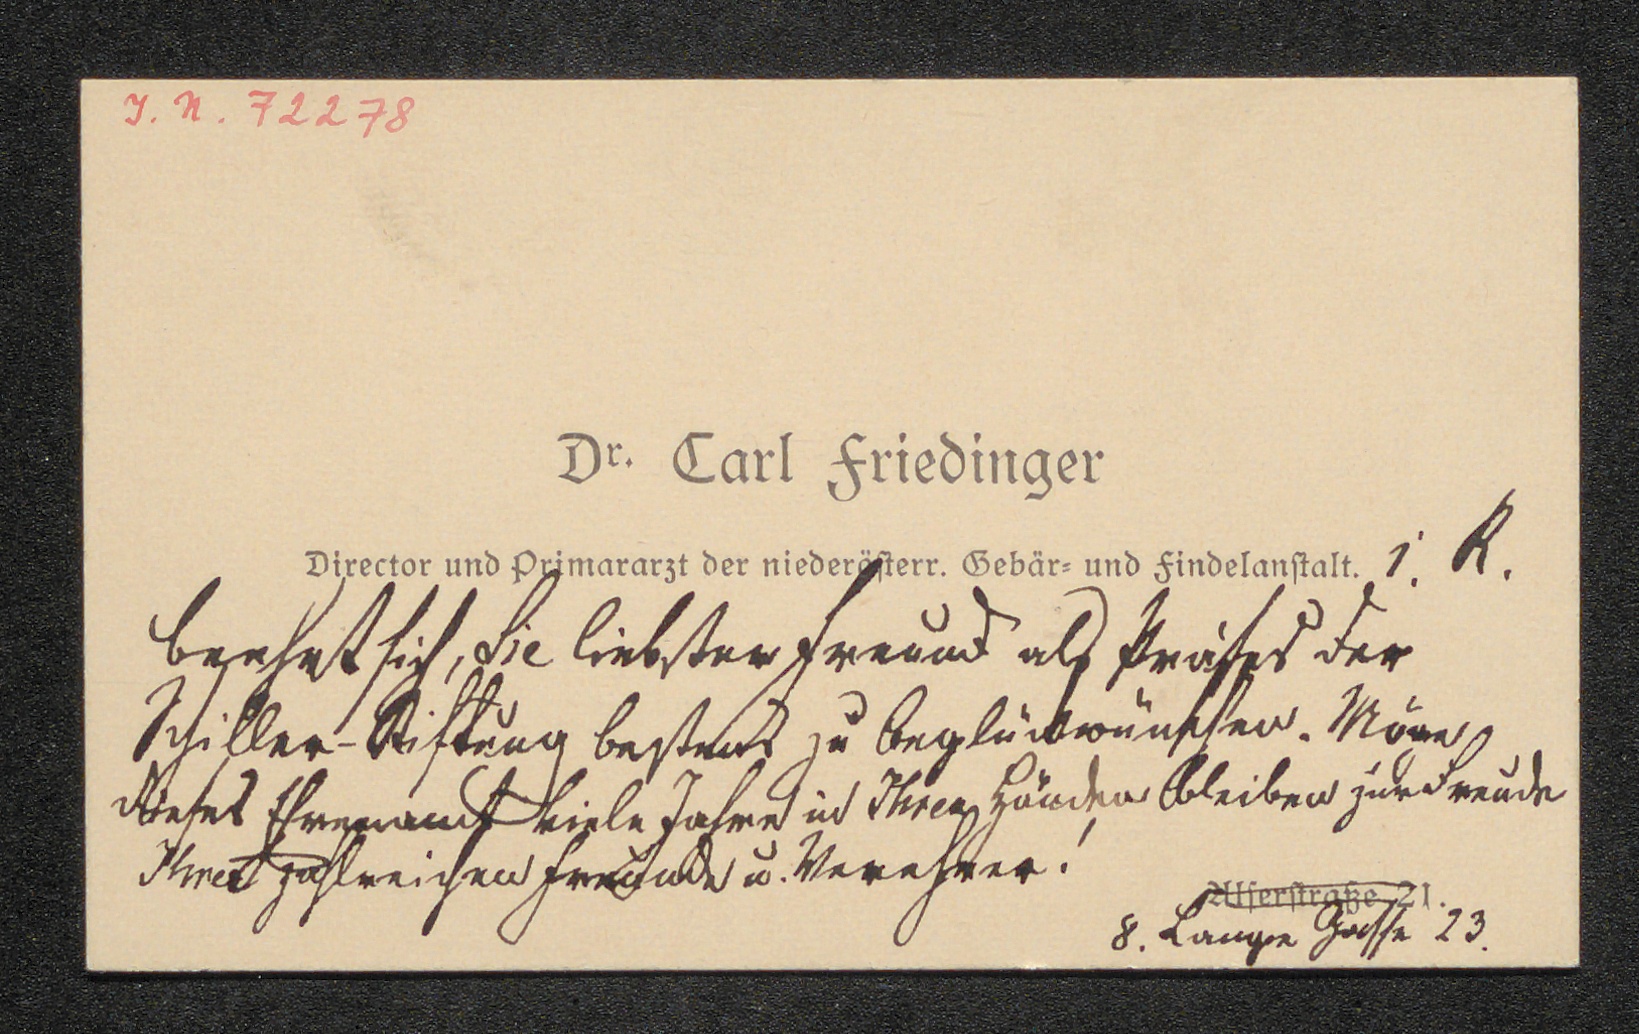 J. N. 72278
Dr. Carl Friedinger
Director und Primararzt der niederösterr. Gebär- und Findelanstalt. i. R.
beehrt sich, Sie liebster Freund als Präses der
Schiller-Stiftung bestens zu beglückwünschen. Möge
dieses Ehrenamt viele Jahre in Ihren Händen bleiben zur Freude
Ihrer zahlreichen Freunde u. Verehrer!
Alserstraße 21.
8. Lange Gasse 23.